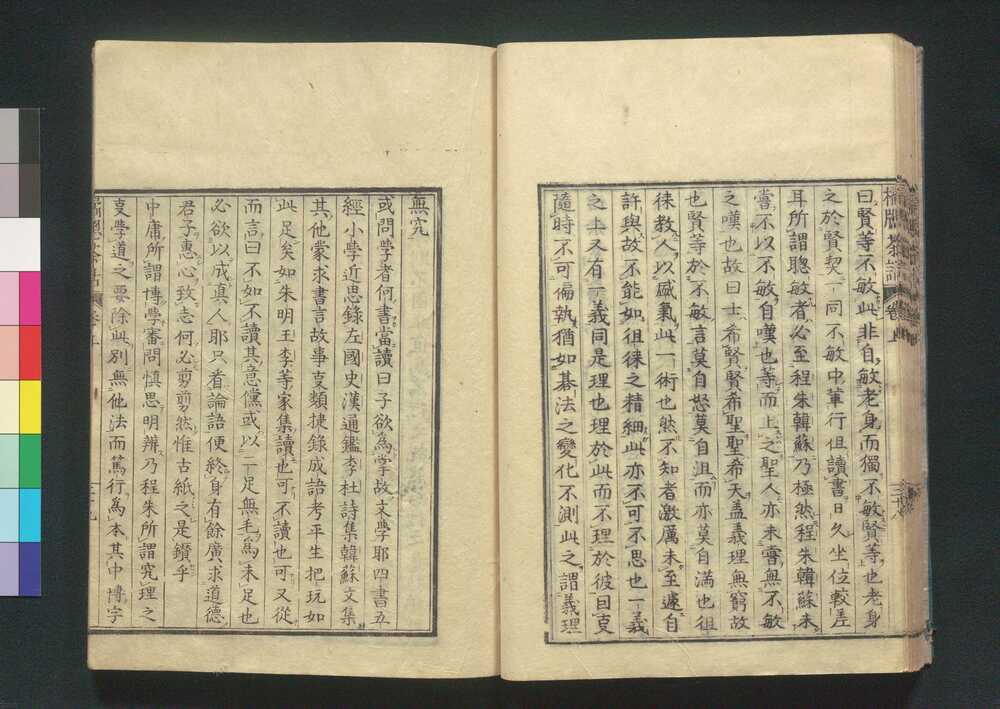 曰賢等不敏此非自敏老身而獨不敏賢等也老身
之於賢契一同不敏中筆行但讀書日久坐位較差
耳所謂聰敏者必至程朱韓蘇乃極然程朱韓蘇未
嘗不以不敏自嘆也等而上之聖人亦未嘗無不敏
之嘆也故曰士希賢賢希聖聖希天盖義理無窮故
也賢等於不敏言莫自怒莫自沮而亦莫自滿也徂
徠教人以感氣此一術也然不知者激厲未至遽自
許與故不能如徂徠之精細此亦不可不思也一義
之上又有一義同是理也理於此而不理於彼曰支
隨時不可偏執猶如碁法之變化不測此之謂義理
無究
或問學者何書當讀曰子欲為學故文學耶四書五
經小學近思錄左國史漢通鑑李杜詩集韓蘇文集
其他蒙求書言故事支類捷錄成語考平生把玩如
此足矣如朱明王李等家集讀也可不讀也可又從
而言曰不如不讀其意儻或以一足無毛為未足也
必欲以成真人耶只看論語便終身有餘廣求道德
君子惠心致志何必剪剪然惟古紙之是鑽乎
中庸所謂博學審問慎思明辨乃程朱所謂究理之
支學道之要除此別無他法而篤行為本其中博字